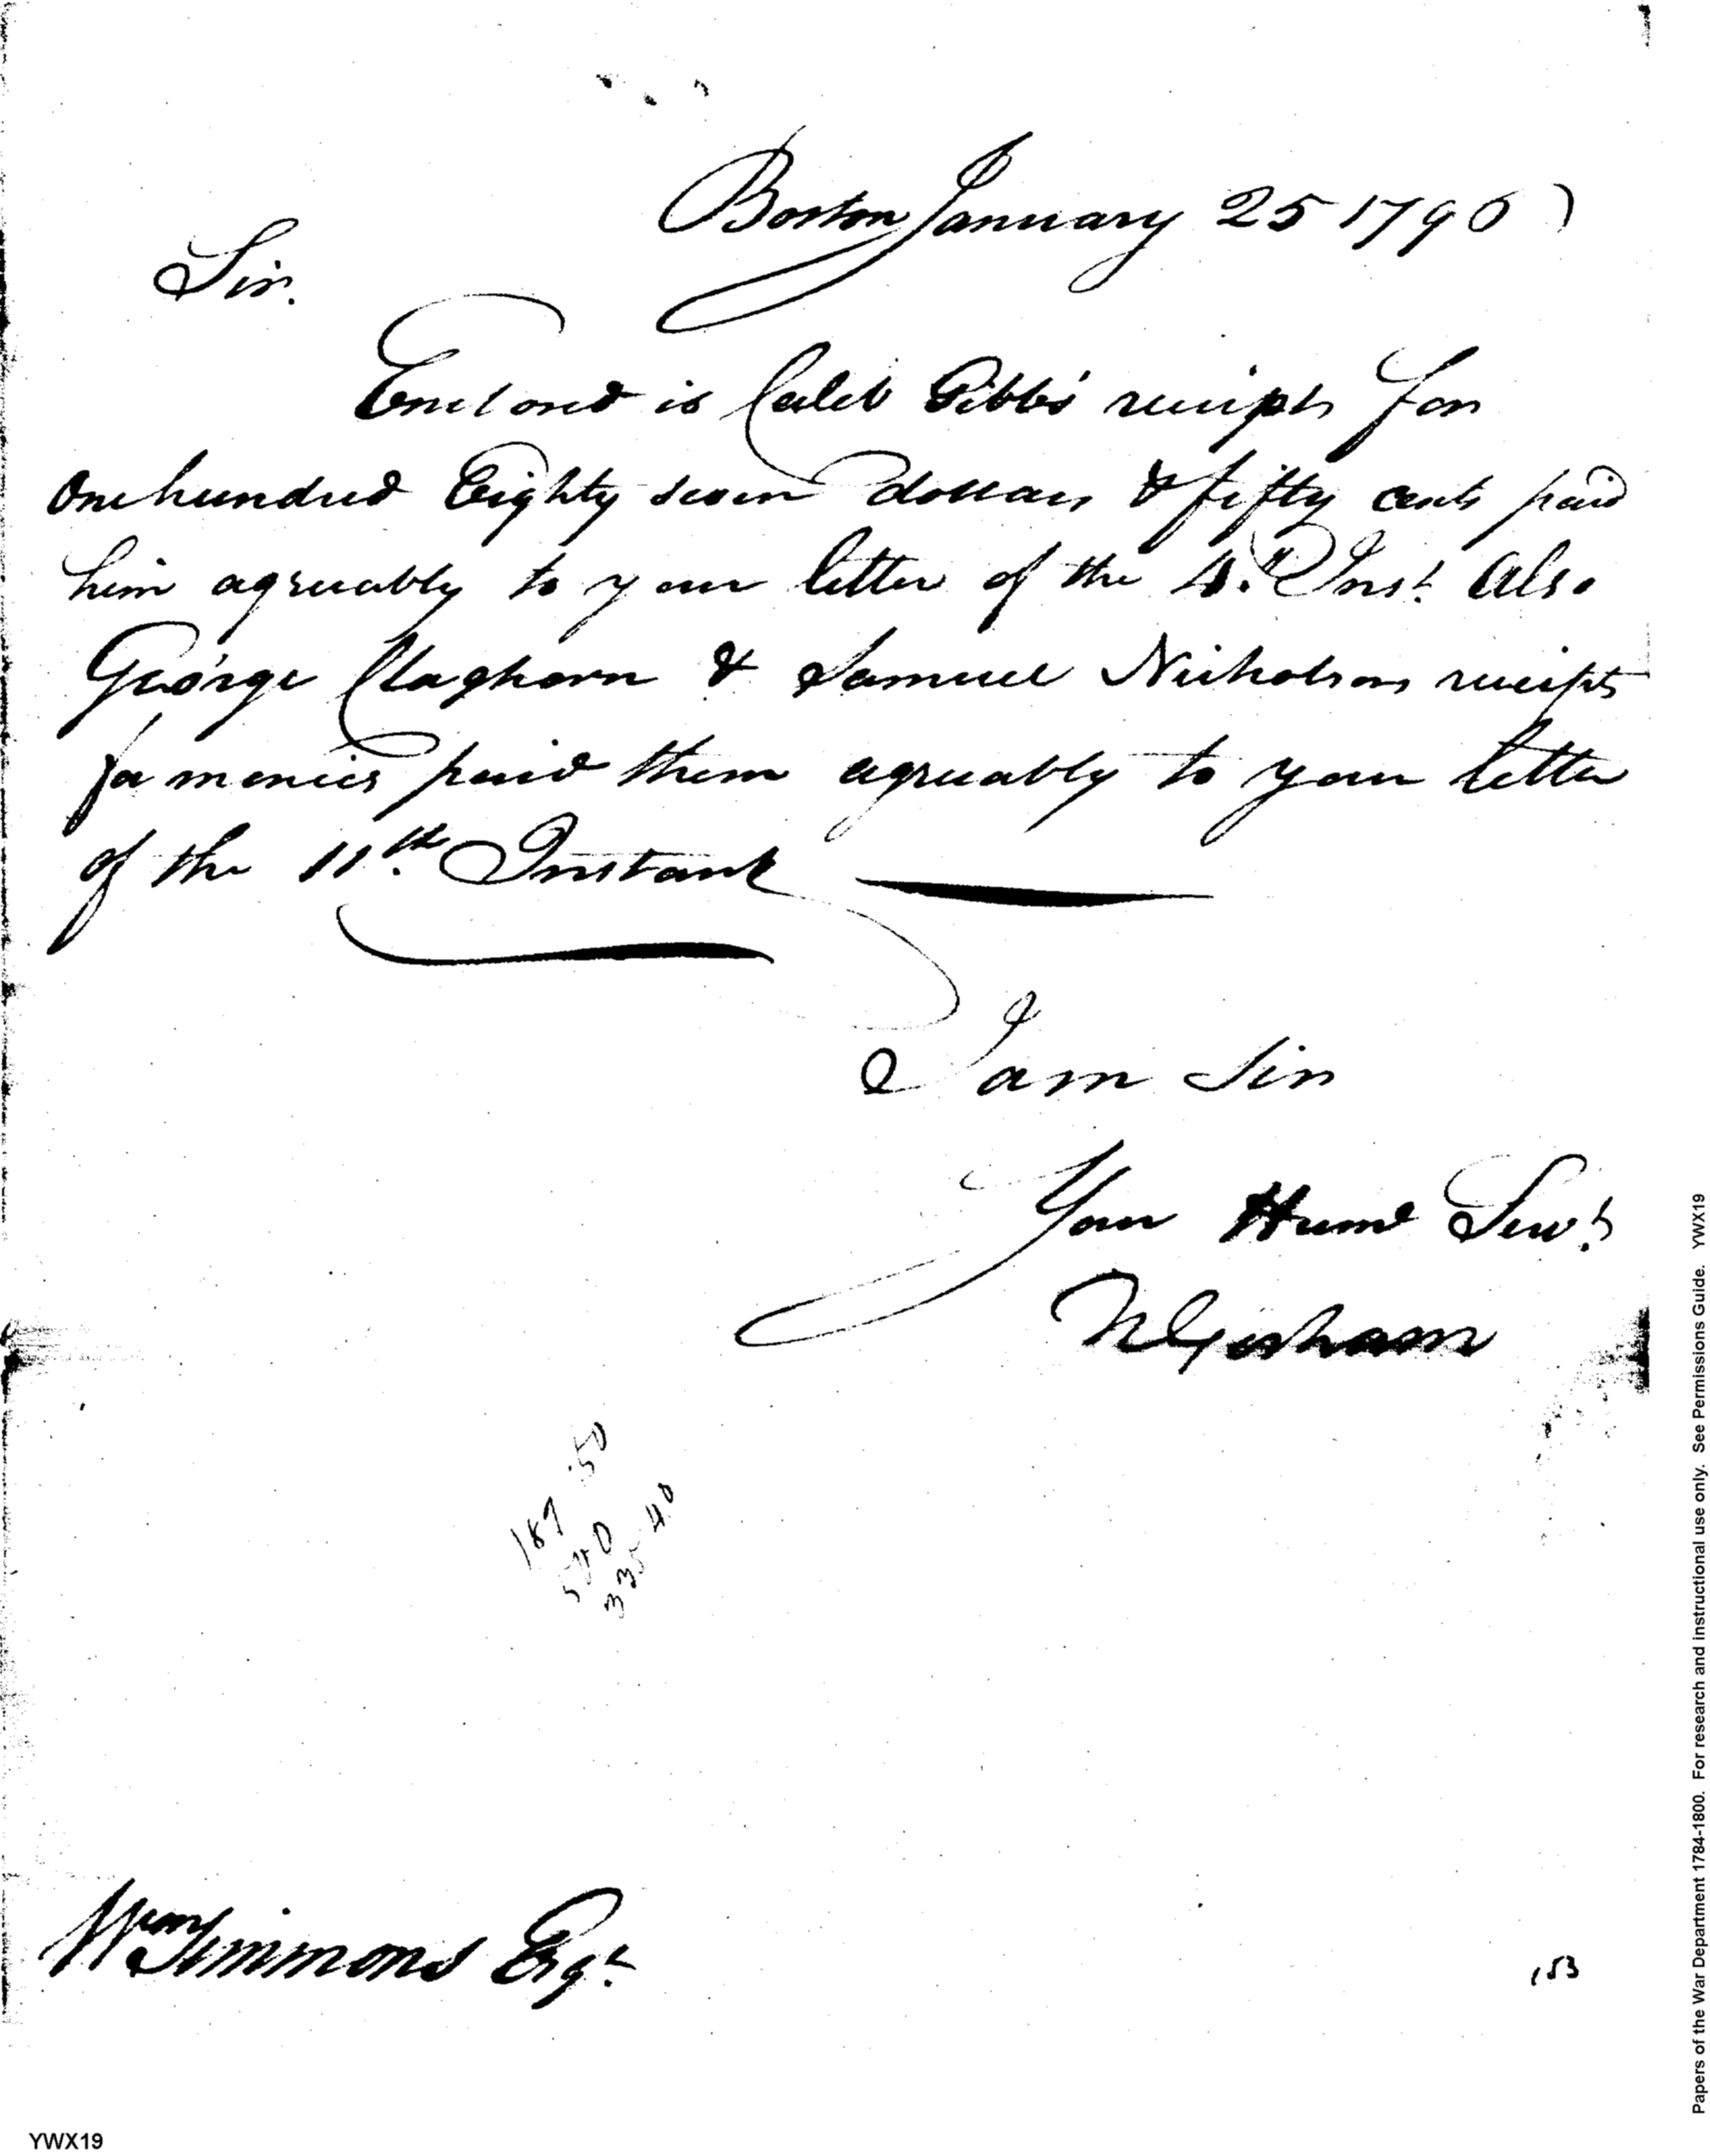 Boston January 25 1796
Sir.
Enclosed is Caleb Gibbs' receipts for
One hundred Eighty seven dollars & fifty cents paid
him agreeably to your letter of the 4.th Inst. Also
George Claghorn & Samuel Nicholson receipts
for monies paid them agreeably to your letter
of the 11.th Instant
I am Sir
Your Humb Servt
N Gorham
187 .50
540
335 40
Wm Simmons Esqr
153
YWX19
Papers of the War Department 1784-1800. For research and instructional use only. See Permissions Guide. YWX19